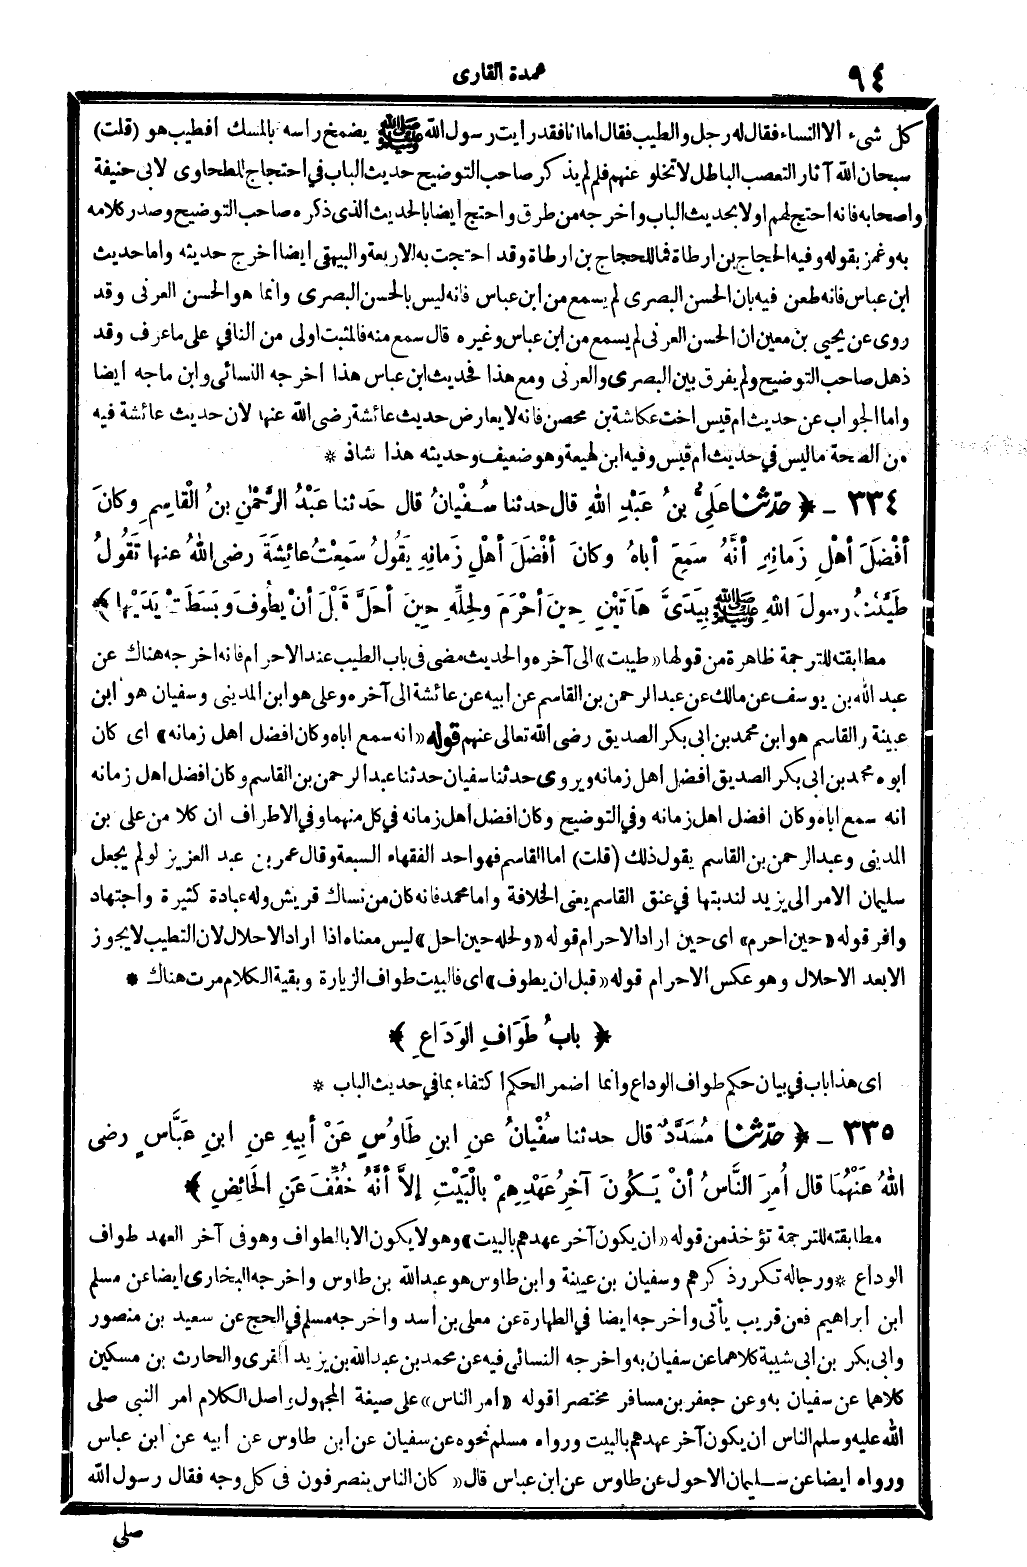 ٩٤
عمدة القارى
كل شىء الا النساء فقال له رجل والطيب فقال اما انا فقد رايت رسول الله ﷺ يضمخ راسه بالمسك أفطيب هو (قلت)
سبحان الله آثار التعصب الباطل لا تخلو عنهم فلم لم يذكر صاحب التوضيح حديث الباب في احتجاج الطحاوى لابى حنيفة
واصحابه فانه احتج لهم اولا بحديث الباب واخرجه من طرق واحتج أيضا بالحديث الذى ذكره صاحب التوضيح وصدر كلامه
به وغمز بقوله وفيه الحجاج بن ارطاة فما للحجاج بن ارطاة وقد احتجت به الاربعة والبيهقى ايضا أخرج حديثه واما حديث
ابن عباس فانه طعن فيه بان الحسن البصرى لم يسمع من ابن عباس فانه ليس بالحسن البصرى وانما هو الحسن العرنى وقد
روى عن يحيى بن معين ان الحسن العرنى لم يسمع من ابن عباس وغيره قال سمع منه فالمثبت اولى من النافي على ما عرف وقد
ذهل صاحب التوضيح ولم يفرق بين البصرى والعرنى ومع هذا فحديث ابن عباس هذا اخرجه النسائى وابن ماجه ايضا
واما الجواب عن حديث ام قيس اخت عكاشة بن محصن فانه لا يعارض حديث عائشة رضى الله عنها لان حديث عائشة فيه
من الصحة ما ليس في حديث ام قيس وفيه ابن لهيعة وهو ضعيف وحديثه هذا شاذ *
٣٣٤ ـ ﴿ حدّثنا عَلِىُّ بنُ عَبْدِ اللهِ قال حدثنا سُفْيانُ قال حَدثنا عَبْدُ الرَّحْمٰنِ بنُ الْقاسِمِ وكانَ
أفْضَلَ أهْلِ زَمانِهِ أنَّهُ سَمِعَ أباهُ وكانَ أفْضَلَ أهْلِ زَمانِهِ يَقُولُ سَمِعْتُ عائِشَةَ رضى اللهُ عنها تَقُولُ
طَيَّبْتُ رسولَ اللهِ ﷺ بِيَدَىَّ هَاتَيْنِ حِينَ أحْرَمَ ولِحِلِّهِ حِينَ أحَلَّ قَبْلَ أنْ يَطُوفَ وبَسَطَتْ يَدَيْها ﴾
مطابقته للترجمة ظاهرة من قولها «طيبت» الى آخره والحديث مضى فى باب الطيب عند الاحرام فانه اخرجه هناك عن
عبد الله بن يوسف عن مالك عن عبد الرحمن بن القاسم عن ابيه عن عائشة الى آخره وعلى هو ابن المدينى وسفيان هو ابن
عيينة والقاسم هو ابن محمد بن ابى بكر الصديق رضى الله تعالى عنهم قوله «انه سمع اباه وكان افضل اهل زمانه» اى كان
ابوه محمد بن ابى بكر الصديق افضل اهل زمانه ويروى حدثنا سفيان حدثنا عبد الرحمن بن القاسم وكان افضل اهل زمانه
انه سمع اباه وكان افضل اهل زمانه وفي التوضيح وكان افضل اهل زمانه في كل منهما وفي الاطراف ان كلا من على بن
المدينى وعبد الرحمن بن القاسم يقول ذلك (قلت) اما القاسم فهو احد الفقهاء السبعة وقال عمر بن عبد العزيز لو لم يجعل
سليمان الامر الى يزيد لندبتها في عنق القاسم يعنى الخلافة واما محمد فانه كان من نساك قريش وله عبادة كثيرة واجتهاد
وافر قوله «حين احرم» اى حين اراد الاحرام قوله «ولحله حين احل» ليس معناه اذا اراد الاحلال لان التطيب لا يجوز
الا بعد الاحلال وهو عكس الاحرام قوله «قبل ان يطوف» اى فالبيت طواف الزيارة وبقية الكلام مرت هناك *
﴿ بابُ طَوَافِ الوَدَاعِ ﴾
اى هذا باب في بيان حكم طواف الوداع وانما اضمر الحكم اكتفاء بما في حديث الباب *
٣٣٥ ـ ﴿ حدّثنا مُسَدَّدٌ قال حدثنا سفْيانُ عنِ ابنِ طَاوُسٍ عَنْ أبِيهِ عنِ ابنِ عَبَّاسٍ رضى
اللهُ عَنْهُمَا قال أُمِرَ النَّاسُ أنْ يَكُونَ آخِرُ عَهْدِهِمْ بالْبَيْتِ إلاَّ أنَّهُ خُفِّفَ عَنِ الحَائِضِ ﴾
مطابقته للترجمة تؤخذ من قوله «ان يكون آخر عهدهم بالبيت» وهو لا يكون الا بالطواف وهو فى آخر العهد طواف
الوداع * ورجاله تكرر ذكرهم وسفيان بن عيينة وابن طاوس هو عبد الله بن طاوس واخرجه البخارى ايضا عن مسلم
ابن ابراهيم فعن قريب يأتى واخرجه ايضا في الطهارة عن معلى بن أسد واخرجه مسلم في الحج عن سعيد بن منصور
وابى بكر بن ابى شيبة كلاهما عن سفيان به واخرجه النسائى فيه عن محمد بن عبد الله بن يزيد المقرى والحارث بن مسكين
كلاهما عن سفيان به وعن جعفر بن مسافر مختصرا قوله «امر الناس» على صيغة المجهول واصل الكلام امر النبى صلى
الله عليه وسلم الناس ان يكون آخر عهدهم بالبيت ورواه مسلم نحوه عن سفيان عن ابن طاوس عن أبيه عن ابن عباس
ورواه ايضا عن سليمان الاحول عن طاوس عن ابن عباس قال «كان الناس ينصرفون فى كل وجه فقال رسول الله
صلى